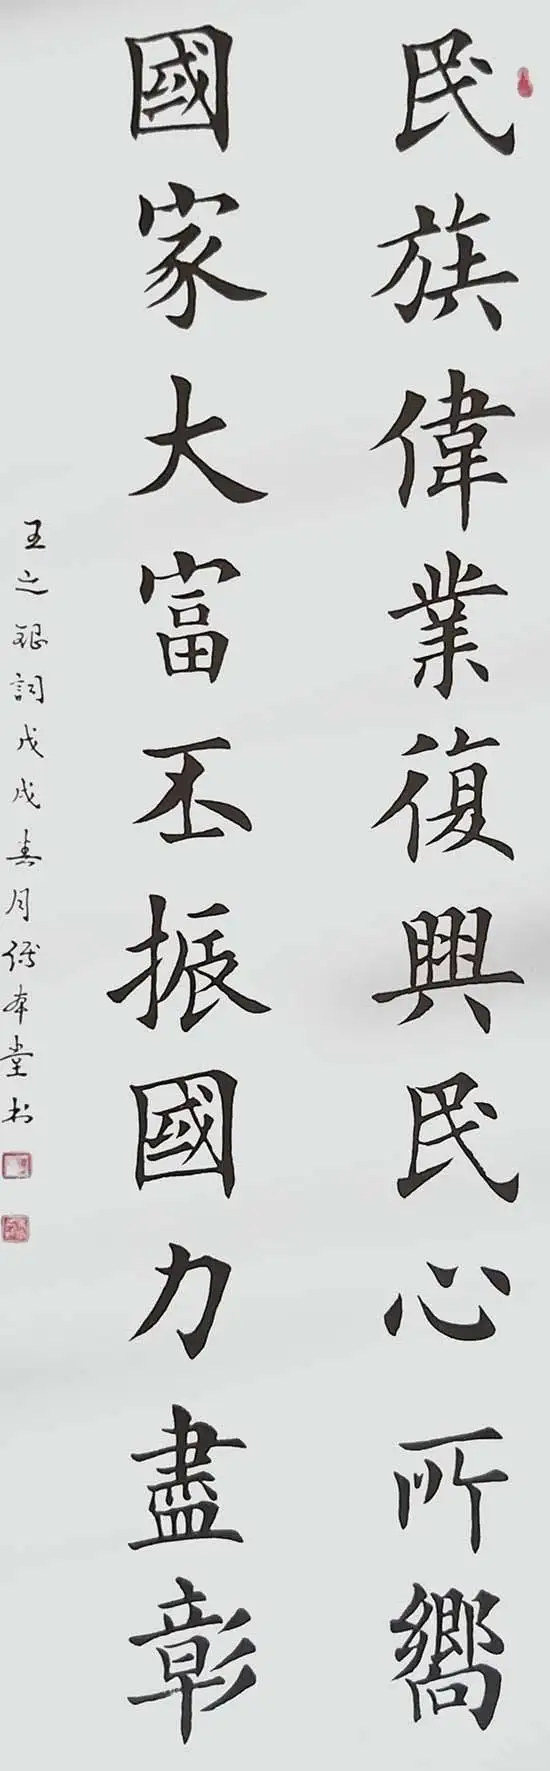 民族偉業復興民心所嚮
國家大富丕振國力盡彰
王之銀詞戊戌春月德本堂書